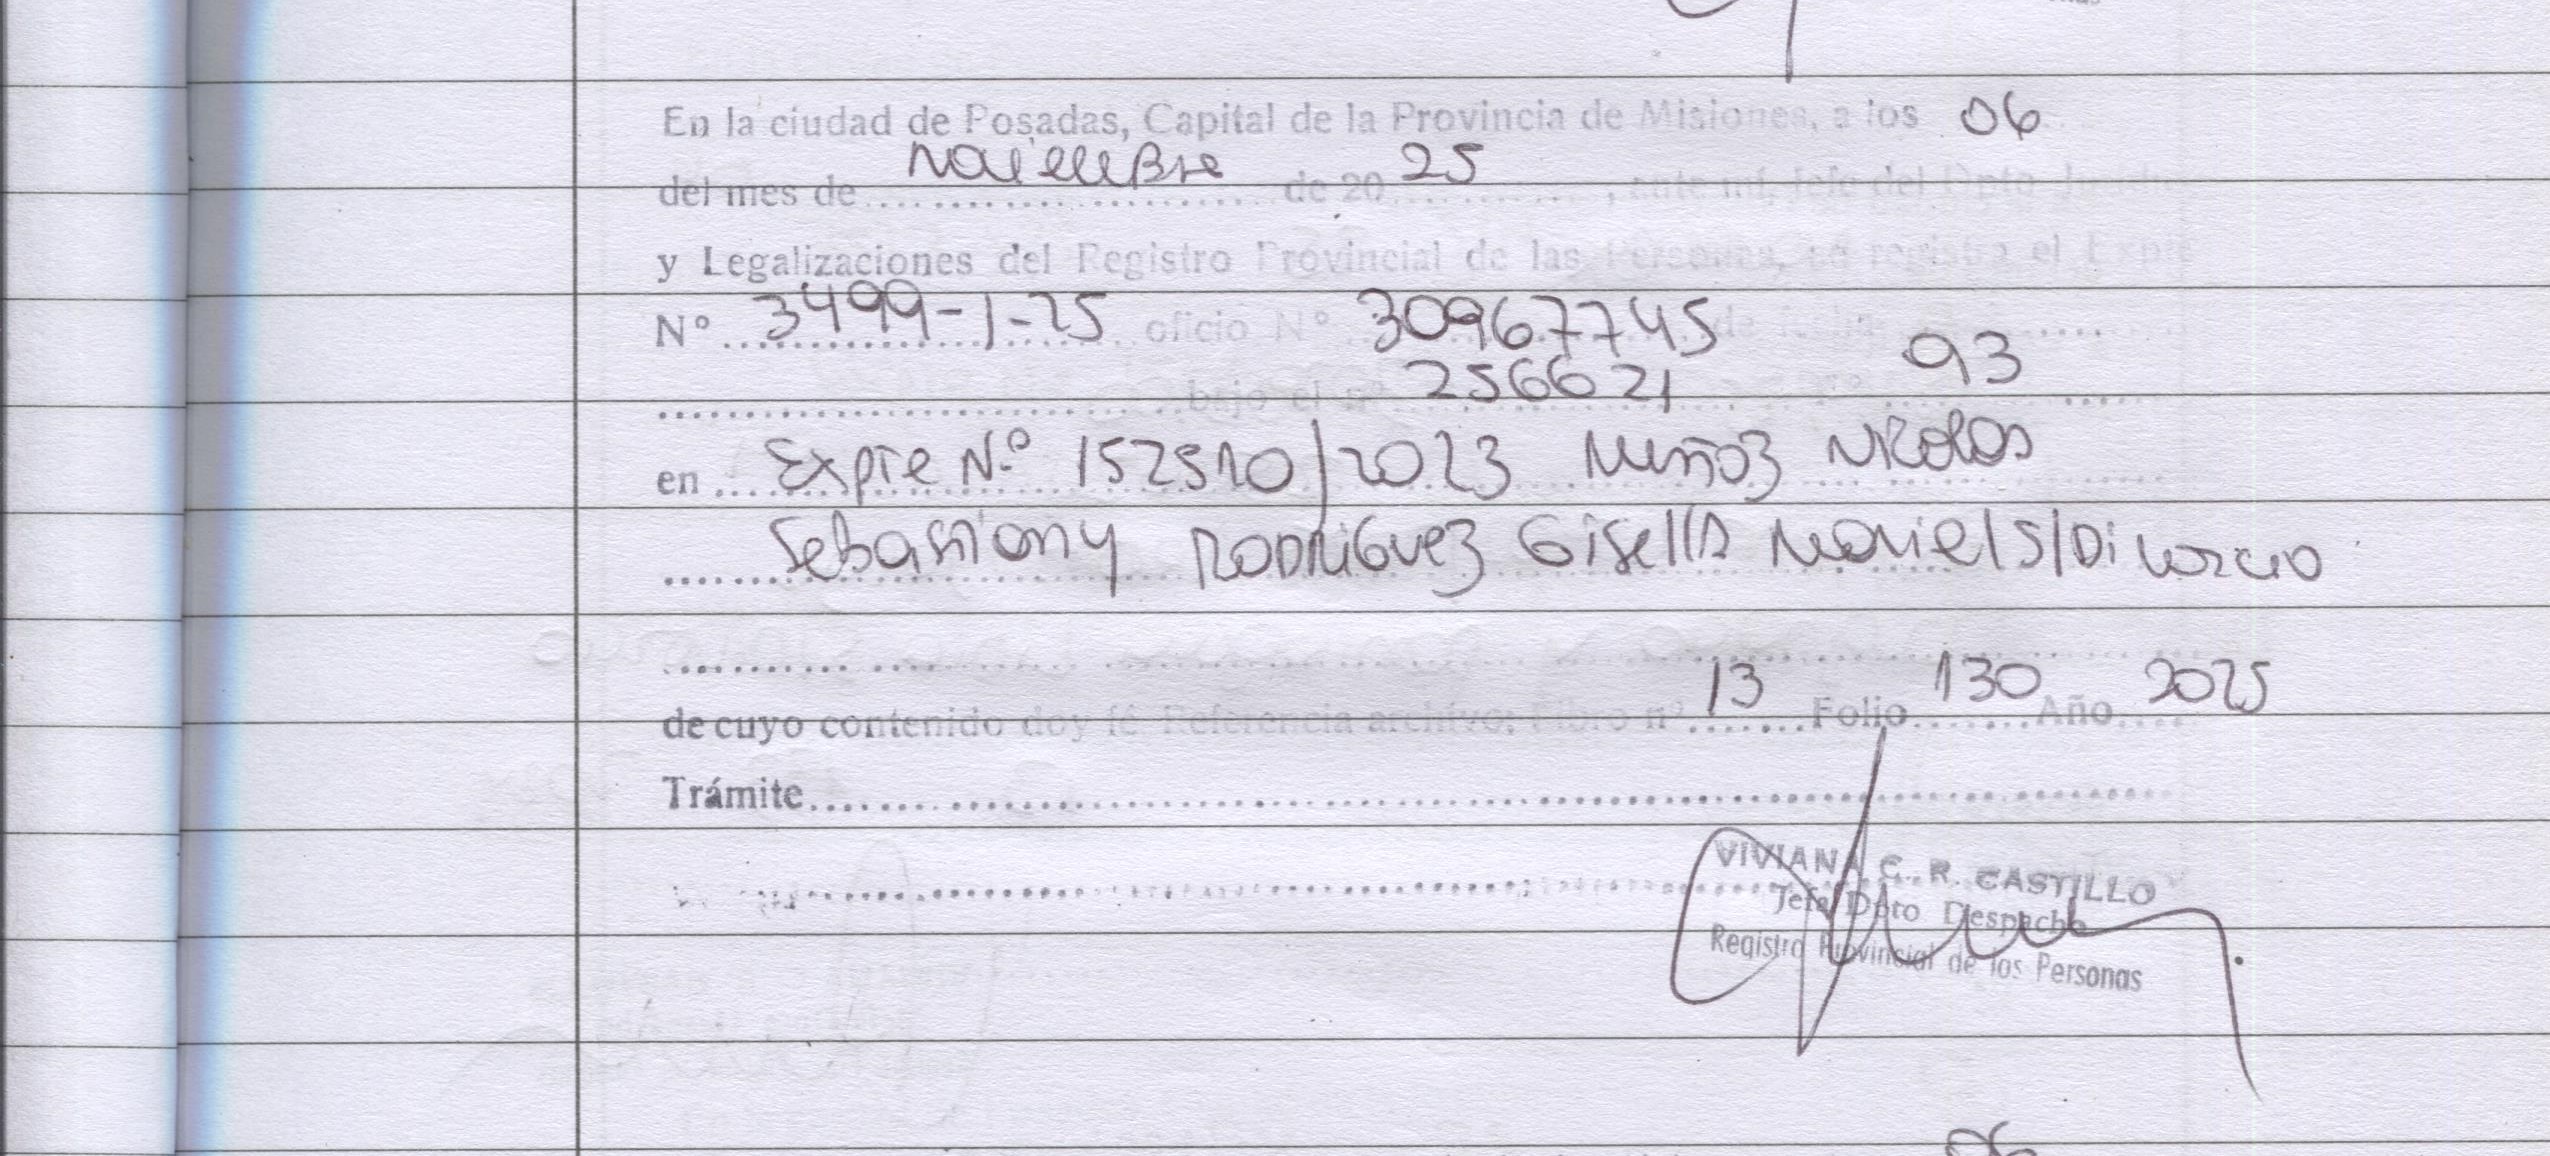 En la ciudad de Posadas, Capital de la Provincia de Misiones, a los 06
del mes de Noviembre de 20 25, ante mí, Jefe del Dpto.
y Legalizaciones del Registro Provincial de las Personas, se registra el Expte
Nº 3499-1-25 oficio Nº 30967745 de fecha
bajo el nº 256621 Fº 93
en Expte Nº 152510/2023 Muñoz Nicolas
Sebastian y Rodriguez Gisella Mariel S/Divorcio
de cuyo contenido doy fé Referencia archivo: Libro nº 13 Folio 130 Año 2025
Trámite
VIVIANA C. R. CASTILLO
Jefa Dpto Despacho
Registro Provincial de las Personas
06